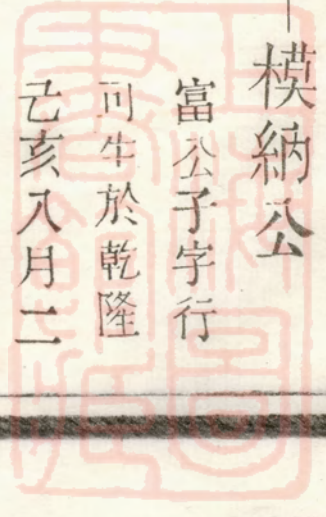 模納公
富公子字行
可生於乾隆
己亥八月二